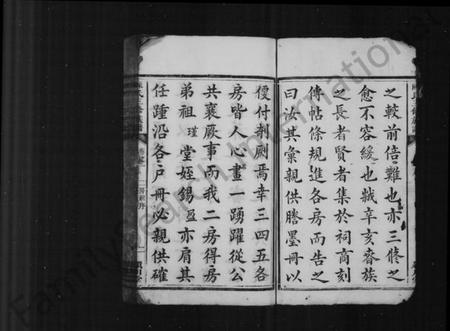 之較前倍難也亦三修之
愈不容緩也越辛亥春族
之長者賢者集於祠商刻
傳帖條規進各房而告之
曰汝其彙親供謄墨冊以
便付剞劂焉幸三四五各
房皆人心畫一踴躍從公
共襄厥事而我二房得房
弟祖瑾堂姪錫盈亦肩其
任踵沿各戶冊必親供確
FamilySearch International